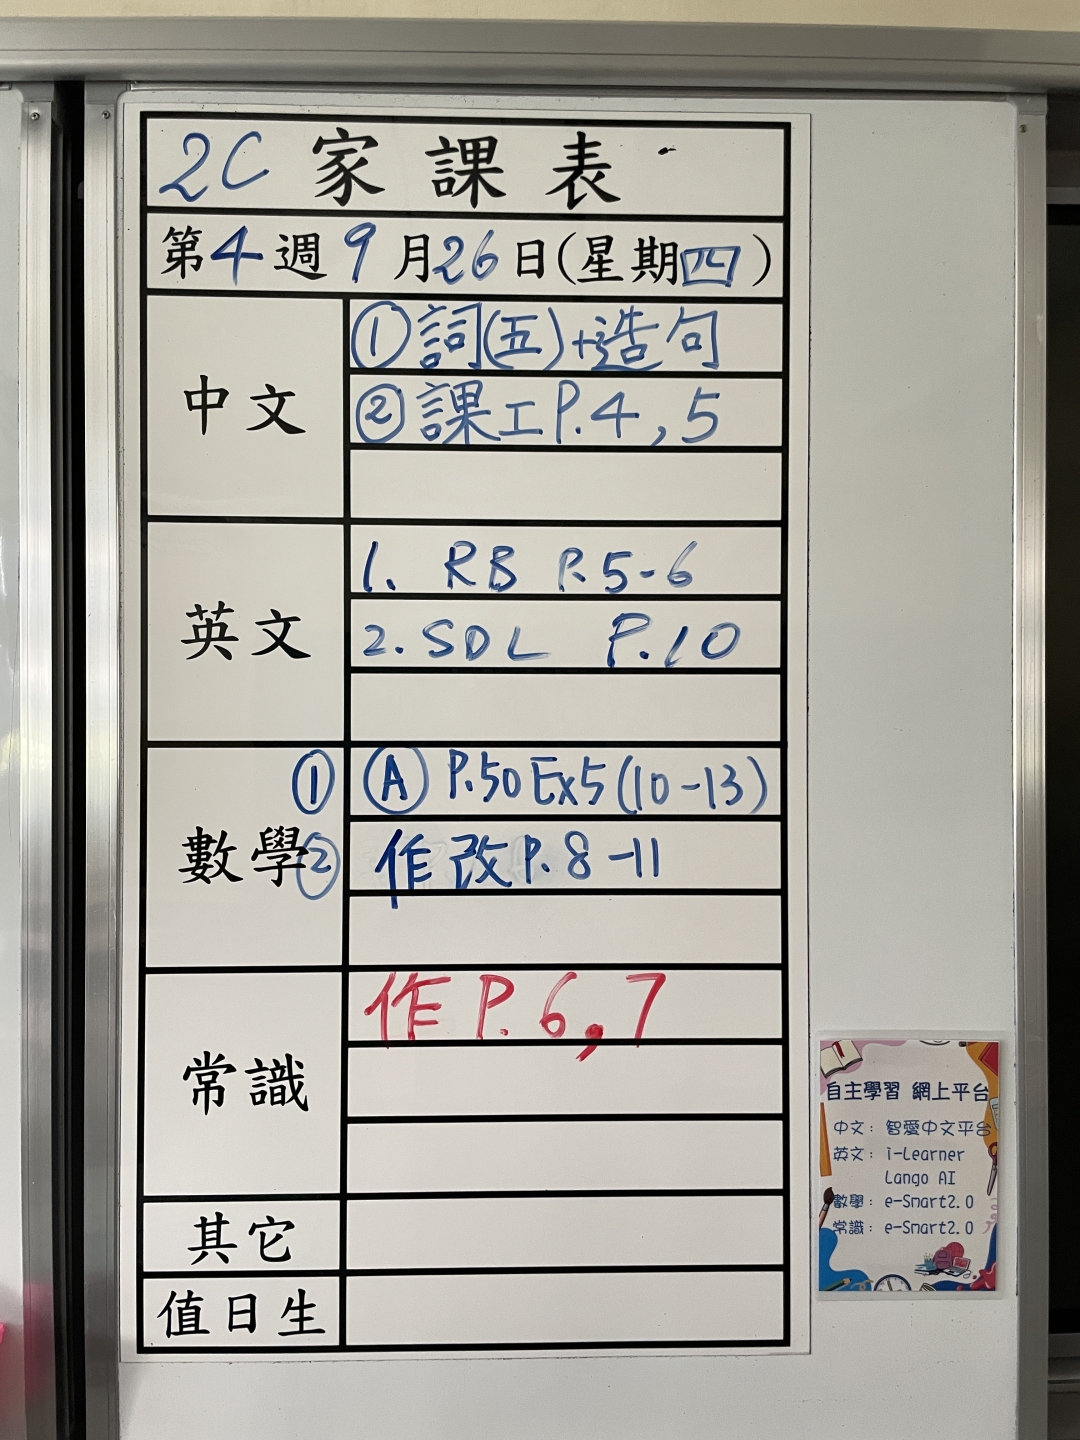 2C 家課表
第4週9月26日(星期四)
中文
①詞(五)+造句
②課工P.4,5
英文
1. RB P.5-6
2. SDL P.10
數學
① Ⓐ P.50 Ex5(10-13)
② 作改P.8-11
常識
作P.6,7
其它
值日生
自主學習 網上平台
中文：智愛中文平台
英文：i-Learner
Lango AI
數學：e-Smart2.0
常識：e-Smart2.0